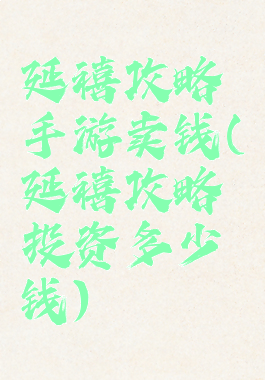 延禧攻略
手游卖钱(
延禧攻略
投资多少
钱)